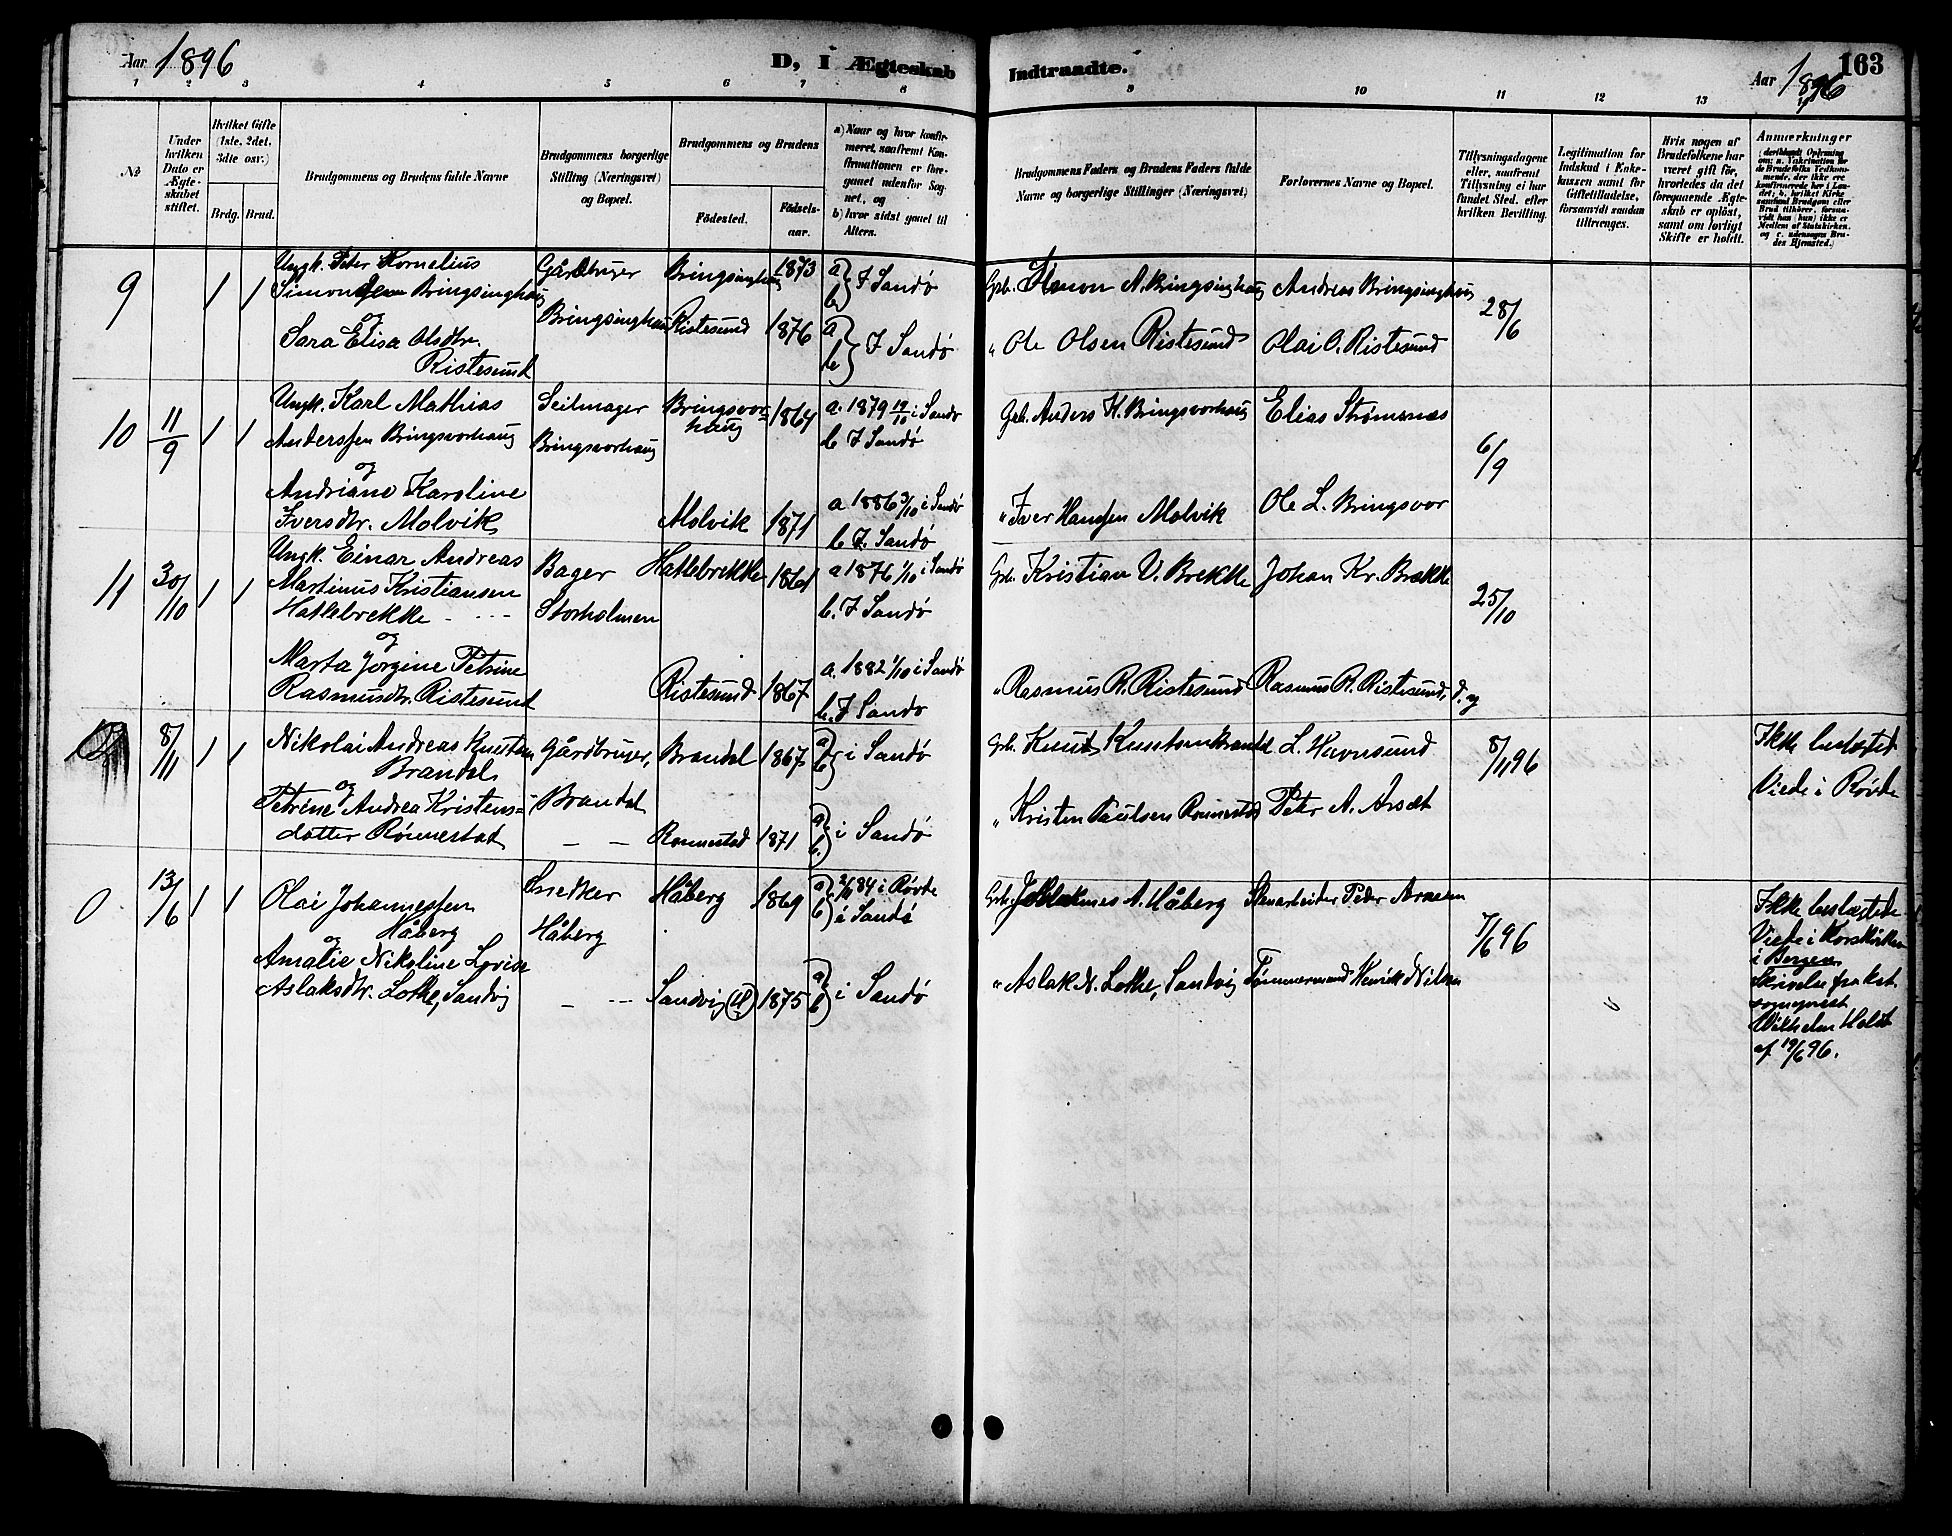 Aar 1896
D, I Ægteskab
Indtraadte.
163
Aar 1896
1 2 3 4 5 6 7 8 9 10 11 12 13 14
№
Under hvilken Dato er Ægteskabet stiftet.
Hvilket Gifte (1ste, 2det, 3die osv.)
Brdg. Brud.
Brudgommens og Brudens fulde Navne
Brudgommens borgerlige Stilling (Næringsvei) og Bopæl.
Brudgommens og Brudens
Födested.
Födselsaar.
a) Naar og hvor konfirmeret, saafremt Konfirmationen er foregaaet udenfor Sognet, og
b) hvor sidst gaaet til Alters.
Brudgommens Faders og Brudens Faders fulde Navne og borgerlige Stillinger (Næringsvei)
Forlovernes Navne og Bopæl.
Tillysningsdagene eller, saafremt Tillysning ei har fundet Sted, efter hvilken Bevilling.
Legitimation for Indskud i Enkekassen samt for Giftetilladelse, forsaavidt saadan tiltrænges.
Hvis nogen af Brudefolkene har været gift för, hvorledes da det foregaaende Ægteskab er oplöst, samt om lovligt Skifte er holdt.
Anmærkninger
9
1 1
Ungk. Peter Kornelius
Simonsen Bringsinghaug
og
Sara Elisa Olsdtr.
Ristesund
Gårdbruger
Bringsinghaug
Bringsinghaug 1873
Ristesund 1876
a b } I Sandø
a b } I Sandø
Grb. Simon A. Bringsinghaug
" Ole Olsen Ristesund
Andreas Bringsinghaug
Olai O. Ristesund
28/6
10 11/9 1 1
Ungk. Karl Mathias
Anderssen Bringsvorhaug
og
Andriane Karoline
Iversdtr. Molvik
Seilmager
Bringsvorhaug
Bringsvorhaug 1864
Molvik 1871
a. 1879 19/10 i Sandø
b I Sandø
a 1886 3/10 i Sandø
b I. Sandø
Grb. Anders K. Bringsvorhaug
" Iver Hanssen Molvik
Elias Strømsnæs
Ole L. Bringsvor
6/9
11 30/10 1 1
Ungk. Einar Andreas
Martinus Kristiansen
Hatlebrekke
og
Marta Jørgine Petrine
Rasmusdtr. Ristesund
Bager
Storholmen
Hatlebrekke 1861
Ristesund 1867
a 1876 1/10 i Sandø
b. I Sandø
a. 1882 1/10 i Sandø
b. I Sandø
Grb. Kristian V. Brekke
" Rasmus R. Ristesund
Johan Kr. Brekke
Rasmus R. Ristesund, d. y
25/10
8/11 1 1
Nikolai Andreas Knutsen
Brandal
og
Petrine Andrea Kristens-
datter Rønnestad
Gårdbruger,
Brandal
Brandal 1867
Rønnestad 1871
a b } i Sandø
a b. } i Sandø
Grb. Knut Knutsen Brandal
" Kristen Paulsen Rønnestad
L. Havnsund
Peter A. Arsæt
8/11 96
Ikke beslægtet
Viede i Røvde
0 13/6 1 1
Olai Johannessen
Håberg
og
Amalie Nikoline Lovise
Aslaksdtr. Lothe, Sandvig
Snedker
Håberg
Håberg 1869
Sandvig 1875
84 i Røvde
i Sandø
a b } i Sandø
Grb. Johannes A. Håberg
" Aslak N. Lothe, Sandvig
Stenarbeider Peder Arnesen
Tømmermand Henrik Nilsen
7/6 96
Ikke beslægtede
Viede i Korskirken
i Bergen.
Skrivelse fra kst.
sognepræst
Wilhelm Holdt
af 19/6 96.